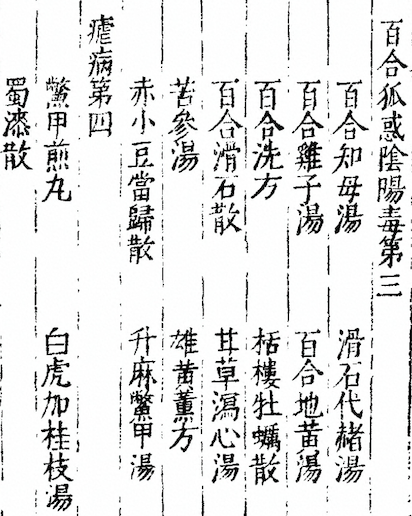 百合狐惑陰陽毒第三
百合知母湯　滑石代赭湯
百合雞子湯　百合地黄湯
百合洗方　栝樓牡蠣散
百合滑石散　甘草瀉心湯
苦參湯　雄黄薰方
赤小豆當歸散　升麻鱉甲湯
瘧病第四
鱉甲煎丸　白虎加桂枝湯
蜀漆散